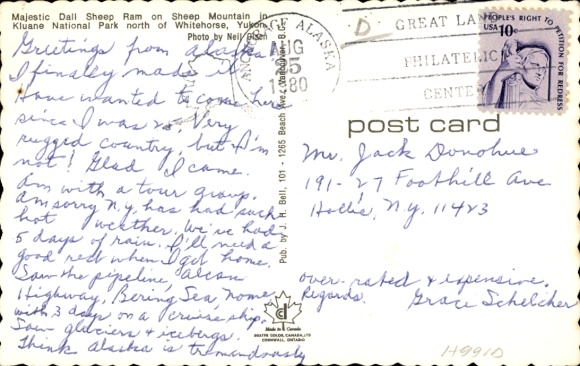 Majestic Dall Sheep Ram on Sheep Mountain in
Kluane National Park north of Whitehorse, Yukon
Photo by Neil
Greetings from Alaska
I finally made it.
Have wanted to come here
since I was 12. Very
rugged country, but I'm
not! Glad I came.
Am with a tour group.
Am sorry N.Y. has had such
hot weather. We've had
5 days of rain. I'll need a
good rest when I get home.
Saw the pipeline, Alcan
Highway, Bering Sea, Nome,
with 3 days on a cruise ship.
Saw glaciers & icebergs.
Think Alaska is tremendously
Pub. by J. H. Bell, 101 - 1265 Beach Ave., Vancouver, B.
Made in Canada
CORNWALL, ONTARIO
ANCHORAGE ALASKA
AUG
25
1980
D
GREAT LAND
PHILATELIC
CENTER
PEOPLE'S RIGHT TO PETITION FOR REDRESS
USA
10c
post card
Mr. Jack Donohue
191-27 Foothill Ave
Hollis, N.Y. 11423
over-rated & expensive.
Regards. Grace Schelcher
H991D